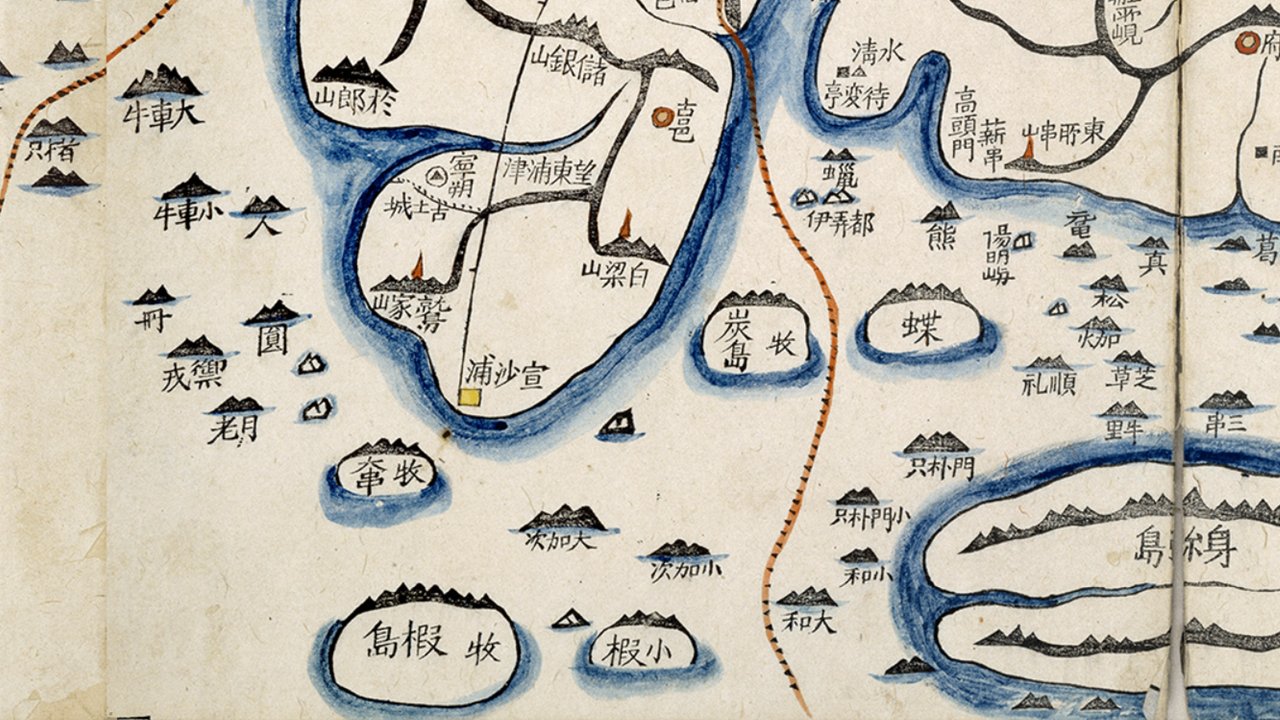 儲銀山
水清
待変亭
於郎山
大車牛
古邑
高頭門
薪串
寧朔
望東浦津
古土城
小車牛
蠟
都弄伊
熊
白梁山
家山
真
葛
松
圓
炭島
牧
蝶
宣沙浦
順礼
芝草
月老
三串
牛里
牧
門朴只
小門朴只
大加次
小加次
小和
大和
身弥島
牧
椵島
小椵